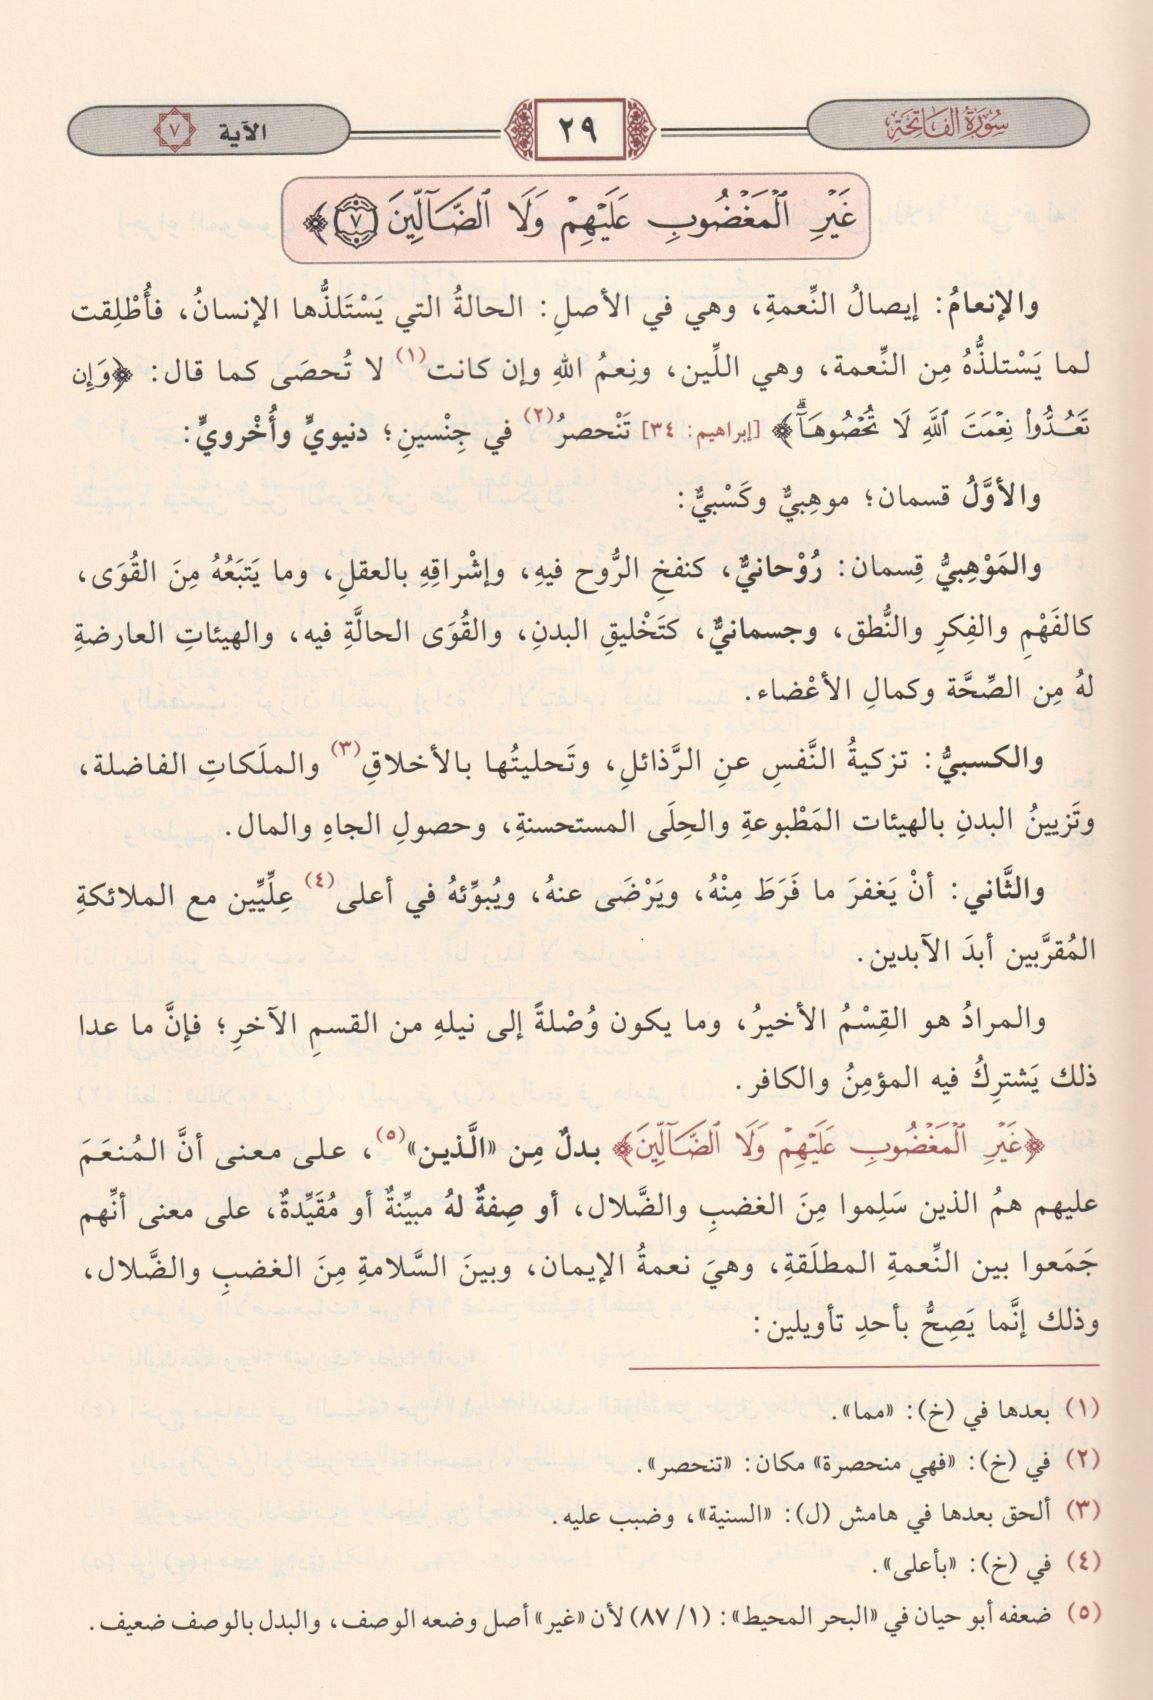 سُورَةُ الفَاتِحَةِ
٢٩
الآية ٧
غَيْرِ الْمَغْضُوبِ عَلَيْهِمْ وَلَا الضَّآلِّينَ ٧﴾
والإنعامُ: إيصالُ النِّعمةِ، وهي في الأصلِ: الحالةُ التي يَسْتَلذُّها الإنسانُ، فأُطْلِقت
لما يَسْتلذُّهُ مِن النِّعمة، وهي اللِّين، ونِعمُ اللهِ وإن كانت(١) لا تُحصَى كما قال: ﴿وَإِن
تَعُدُّوا۟ نِعْمَتَ ٱللَّهِ لَا تُحْصُوهَآ﴾ [إبراهيم: ٣٤] تَنْحصرُ(٢) في جِنْسينِ؛ دنيويٍّ وأُخْرويٍّ:
والأوَّلُ قسمان؛ موهِبيٌّ وكَسْبيٌّ:
والمَوْهِبيُّ قِسمان: رُوْحانيٌّ، كنفخِ الرُّوح فيهِ، وإشْراقِهِ بالعقلِ، وما يَتبَعُهُ مِنَ القُوَى،
كالفَهْمِ والفِكرِ والنُّطق، وجسمانيٌّ، كتَخْليقِ البدنِ، والقُوَى الحالَّةِ فيه، والهيئاتِ العارضةِ
لهُ مِن الصِّحَّة وكمالِ الأعْضاء.
والكسبيُّ: تزكيةُ النَّفسِ عنِ الرَّذائلِ، وتَحليتُها بالأخلاقِ(٣) والملَكاتِ الفاضلة،
وتَزيينُ البدنِ بالهيئات المَطْبوعةِ والحِلَى المستحسنةِ، وحصولِ الجاهِ والمال.
والثَّاني: أنْ يَغفرَ ما فَرَطَ مِنْهُ، ويَرْضَى عنهُ، ويُبوِّئهُ في أعلى(٤) عِلِّيِّين مع الملائكةِ
المُقرَّبين أبدَ الآبدين.
والمرادُ هو القِسْمُ الأخيرُ، وما يكون وُصْلةً إلى نيلهِ من القسمِ الآخرِ؛ فإنَّ ما عدا
ذلك يَشترِكُ فيه المؤمِنُ والكافر.
﴿غَيْرِ الْمَغْضُوبِ عَلَيْهِمْ وَلَا الضَّآلِّينَ﴾ بدلٌ مِن «الَّذين»(٥)، على معنى أنَّ المُنعَمَ
عليهم همُ الذين سَلِموا مِنَ الغضبِ والضَّلال، أو صِفةٌ لهُ مبيِّنةٌ أو مُقَيِّدةٌ، على معنى أنَّهم
جَمَعوا بين النِّعمةِ المطلَقةِ، وهيَ نعمةُ الإيمان، وبينَ السَّلامةِ مِنَ الغضبِ والضَّلال،
وذلك إنَّما يَصِحُّ بأحدِ تأويلين:
(١) بعدها في (خ): «مما».
(٢) في (خ): «فهي منحصرة» مكان: «تنحصر».
(٣) ألحق بعدها في هامش (ل): «السنية»، وضبب عليه.
(٤) في (خ): «بأعلى».
(٥) ضعفه أبو حيان في «البحر المحيط»: (١/ ٨٧) لأن «غير» أصل وضعه الوصف، والبدل بالوصف ضعيف.